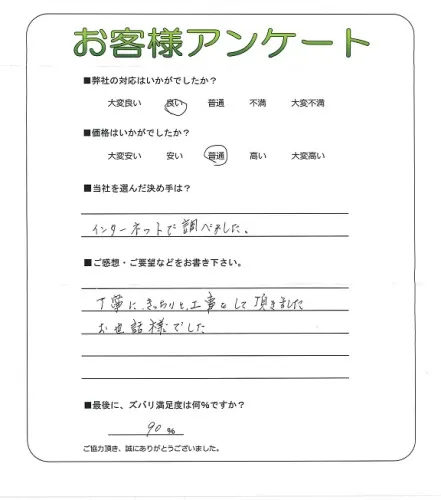 お客様アンケート
■弊社の対応はいかがでしたか？
大変良い 良い 普通 不満 大変不満
■価格はいかがでしたか？
大変安い 安い 普通 高い 大変高い
■当社を選んだ決め手は？
インターネットで調べました。
■ご感想・ご要望などをお書き下さい。
丁寧に、きっちりと、工事なして頂きました
お世話様でした
■最後に、ズバリ満足度は何%ですか？
90 %
ご協力頂き、誠にありがとうございました。